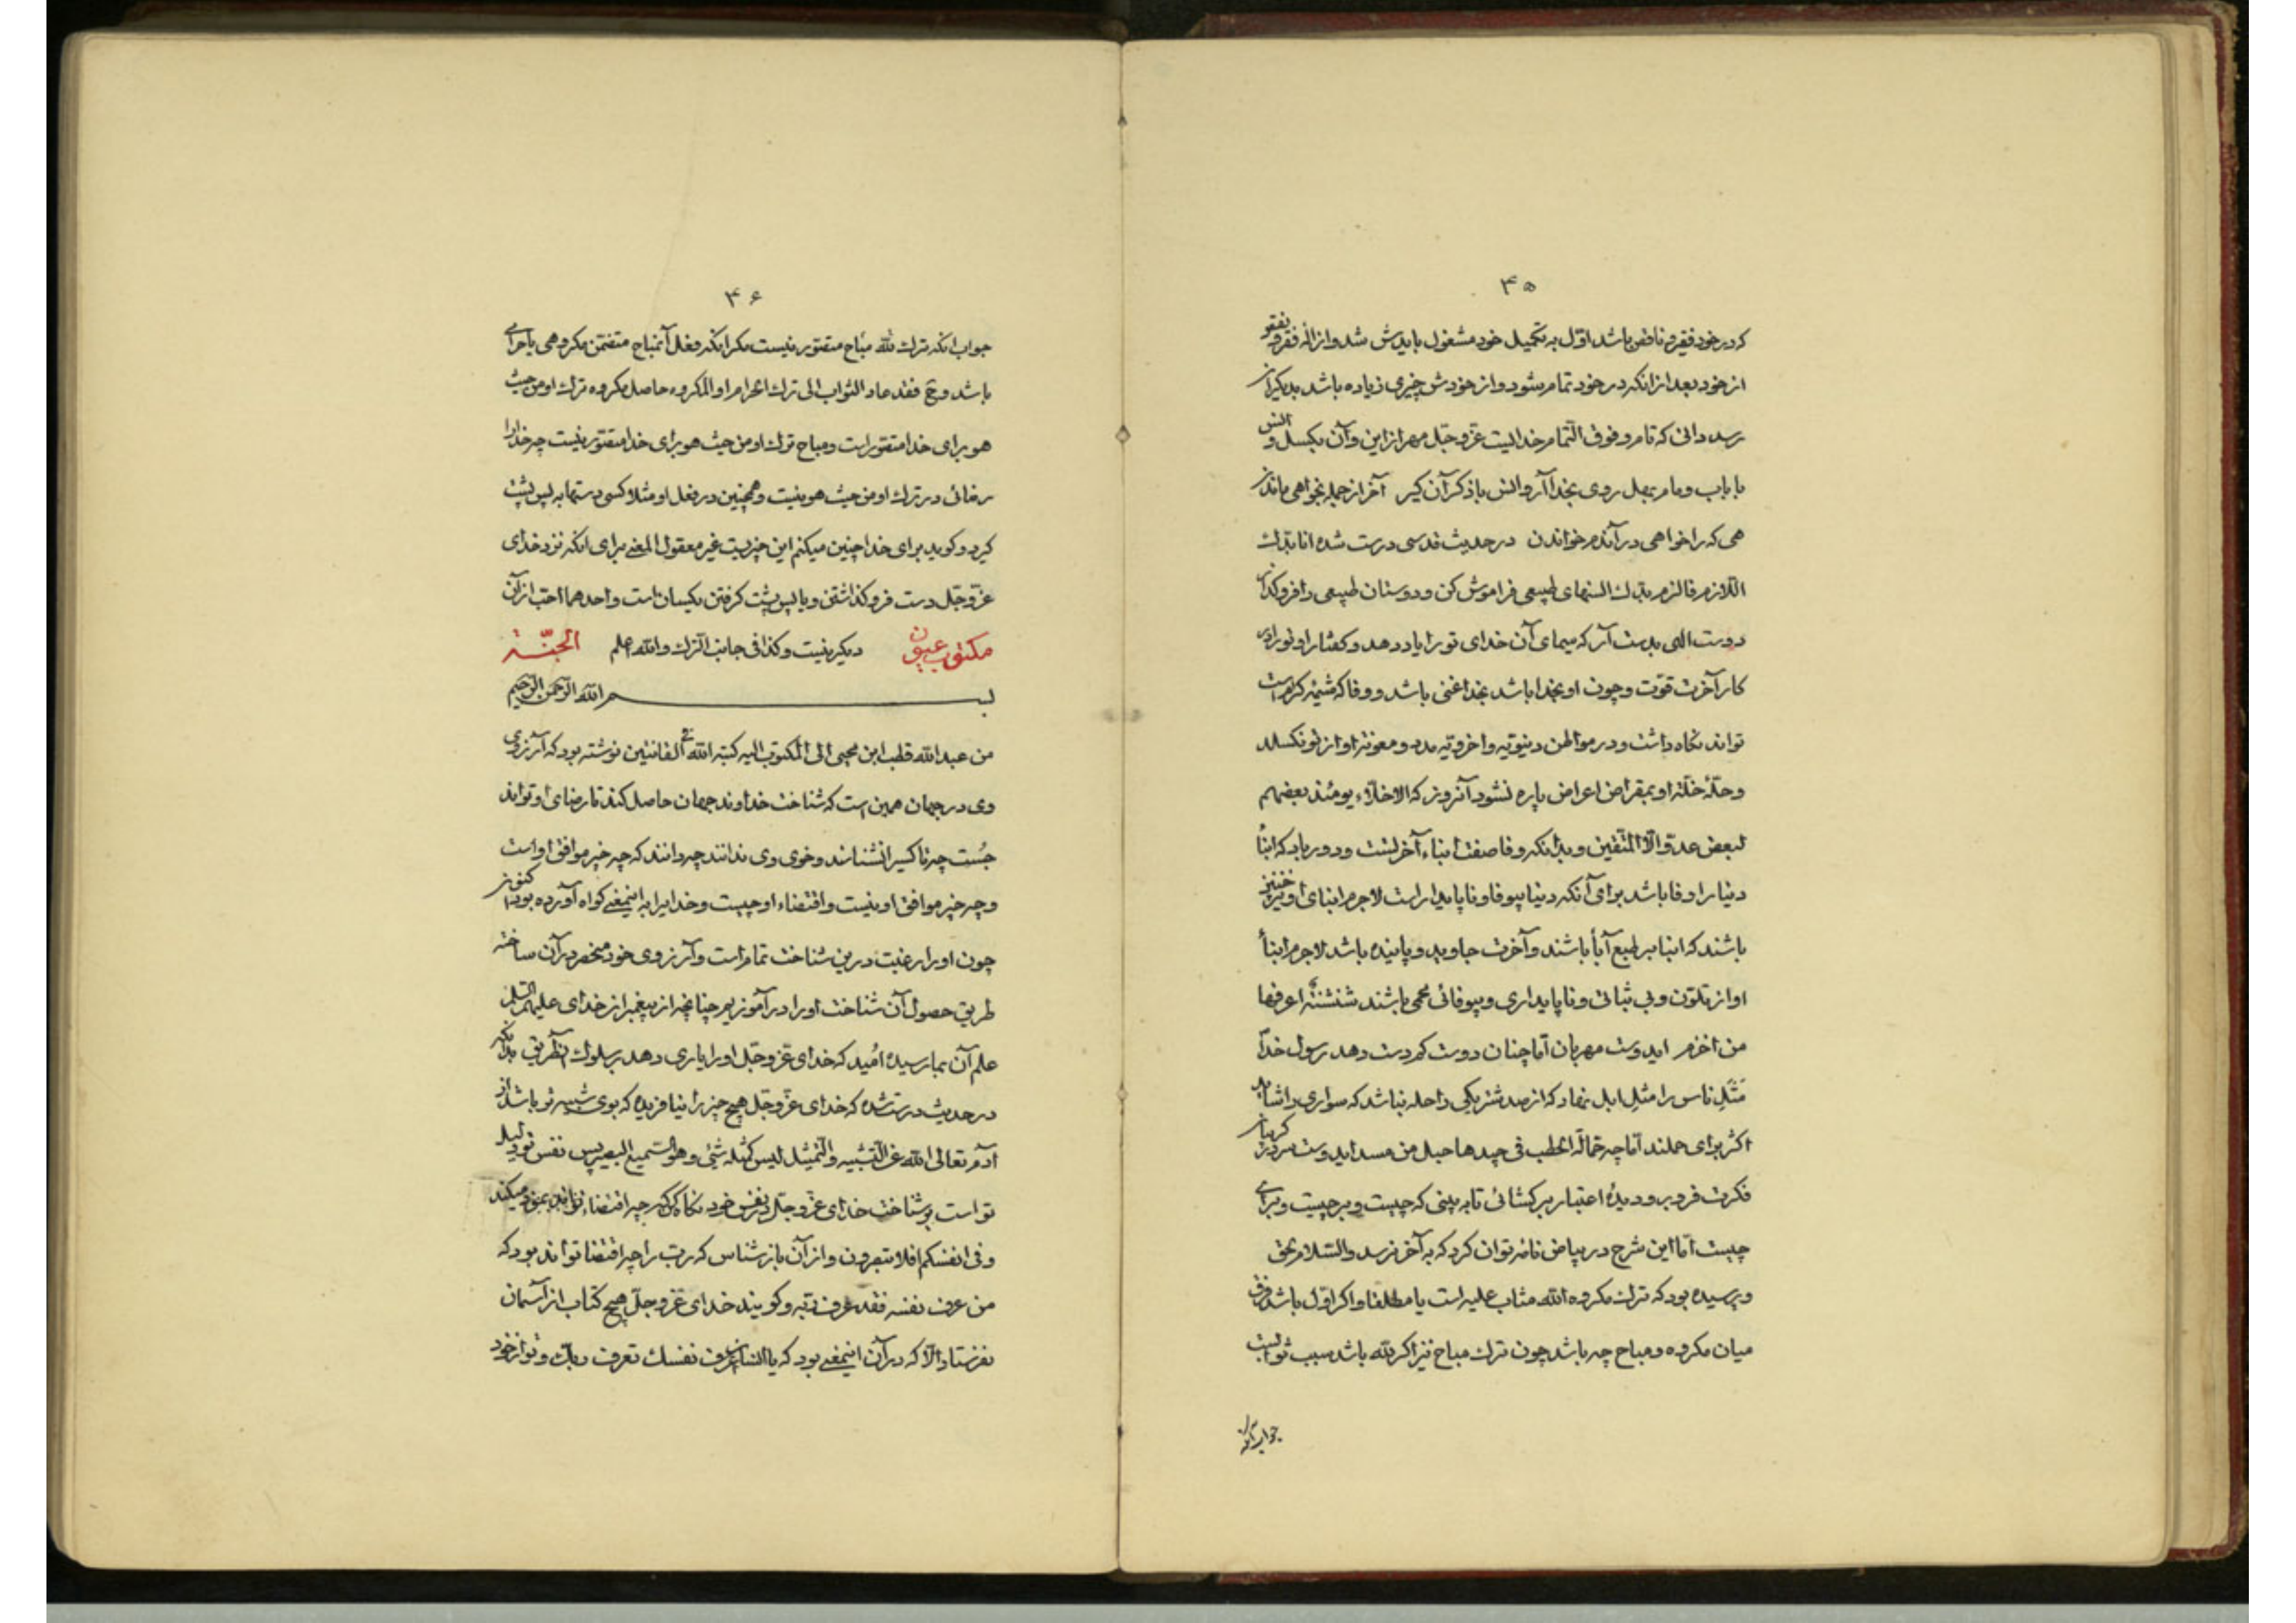 ۳۵
که در خود فقیر و ناقص باشد اوّل به تکمیل خود مشغول بایدش شد و ازالهٔ فقر و نقص
از خود بعد از انکه در خود تمام شود و از خودش چیزی زیاده باشد بدیکران
رسد دانی که تام و فوق التّمام خدایست عزّوجلّ مهر از این و آن بکسل و انس
با باب و مام بهل روی بخدا آر و انس با ذکر آن کیر آخر از جمله بخواهی ماند از
همی که را خواهی در آندم خواندن در حدیث قدسی درست شده انا بدّك
اللّازم فالزم بدّك انسهای طبیعی فراموش کن و دوستان طبیعی را فروکذار
دوست الهی بدست آر که سیمای آن خدای تو را یاد دهد و کفتار او تو را در
کار آخرت قوّت و چون او بخدا باشد بخدا غنی باشد و وفا که شیمهٔ کرام است
تواند نکاه داشت و در مواطن دینویّه و اخرویّه مدد و معونت او از تو نکسلد
و حلّهٔ خلّت او بمقراض اعراض پاره نشود آنروز که الاخلّاء یومئذ بعضهم
لبعض عدوّ الّا المتّقین و بدانکه وفا صفت ابناء آخرتست و دور باد که ابناء
دنیا را وفا باشد برای آنکه دنیا بیوفا و ناپایدار است لاجرم ابنای او نیز چنین
باشند که ابنا بر طبع آبأ باشند و آخرت جاوید و پاینده باشد لاجرم ابنأ
او از تلوّن و بی ثباتی و ناپایداری و بیوفائی محمی باشند شنشنة اعرفها
من اخزم ایدوست مهربان آما چنان دوست کم دست دهد رسول خدا
مَثَلِ ناس را مثلِ ابل نهاد که از صد شتر یکی راحله نباشد که سواری را شاید
اکثر برای حملند آما چه حمّالة الحطب فی جیدها حبل من مسد ایدوست سر در کریبان
فکرت فرو بر و دیدهٔ اعتبار برکشائی تا به بینی که چیست و بر چیست و برای
چیست آما این شرح در بیاض نامه توان کرد که به آخر نرسد والسّلام بحق
و پرسیده بود که ترك مکروه للّه مثاب علیه است یا مطلقا و اکر اوّل باشد فرق
میان مکروه و مباح چه باشد چون ترك مباح نیز اکر للّه باشد سبب ثوابست
جواب آنکه
۳۶
جواب انکه ترك للّه مباح متصوّر نیست مکر انکه فعل آنمباح متضمّن مکروهی یا حرامی
باشد و ح فقد عاد الثواب الی ترك الحرام او المکروه حاصل مکروه ترك او من حیث
هو برای خدا متصوّر است و مباح ترك او من حیث هو برای خدا متصوّر نیست چه خدا را
رضائی در ترك او من حیث هو نیست و همچنین در فعل او مثلا کسی دستها به پس پشت
کیرد و کوید برای خدا چنین میکنم این چیزیست غیر معقول المعنی برای انکه نزد خدای
عزّوجلّ دست فروکذاشتن و با پس پشت کرفتن یکسان است و احدهما احبّ از آن
دیکر نیست و کذا فی جانب الترك واللّه اعلم
مکتوب عیون الجنّة
بسم اللّه الرّحمن الرّحیم
من عبد اللّه قطب ابن محیی الی المکتوب الیه کتبه اللّه فی القانتین نوشته بود که آرزوی
وی در جهان همین است که شناخت خداوند جهان حاصل کند تا رضای او تواند
جُست چه تا کسی را نشناسند و خوی وی ندانند چه دانند که چه چیز موافق اوست
و چه چیز موافق او نیست و اقتضاء او چیست و خدا یرا به اینمعنی کواه آورده بود اکنون
چون او را رغبت درین شناخت تمام است و آرزوی خود منحصر در آن ساخته
طریق حصول آن شناخت او را در آموزیم چنانچه از پیغمبر از خدای علیهم السّلام
علم آن بما رسیده امُید که خدای عزّوجلّ او را یاری دهد بر سلوك آنطریق بدانکه
در حدیث درست شده که خدای عزّوجلّ هیچ چیز را نیافریده که بوی شبیه تر باشد از
آدم تعالی اللّه عن التّشبیه والتّمثیل لیس کمثله شئی و هو السّمیع البصیر پس نفس تو دلیل
تو است بر شناخت خدای عزّوجلّ در نفس خود نکاه کن که چه اقتضاء تواند بود میکند
و فی انفسکم افلا تبصرون و از آن باز شناس که ربّ را چه اقتضا تواند بود که
من عرف نفسه فقد عرف ربّه و کویند خدای عزّوجلّ هیچ کتاب از آسمان
نفرستاد الّا که در آن اینمعنی بود که یا انسان اعرف نفسك تعرف ربّك و تو از خود